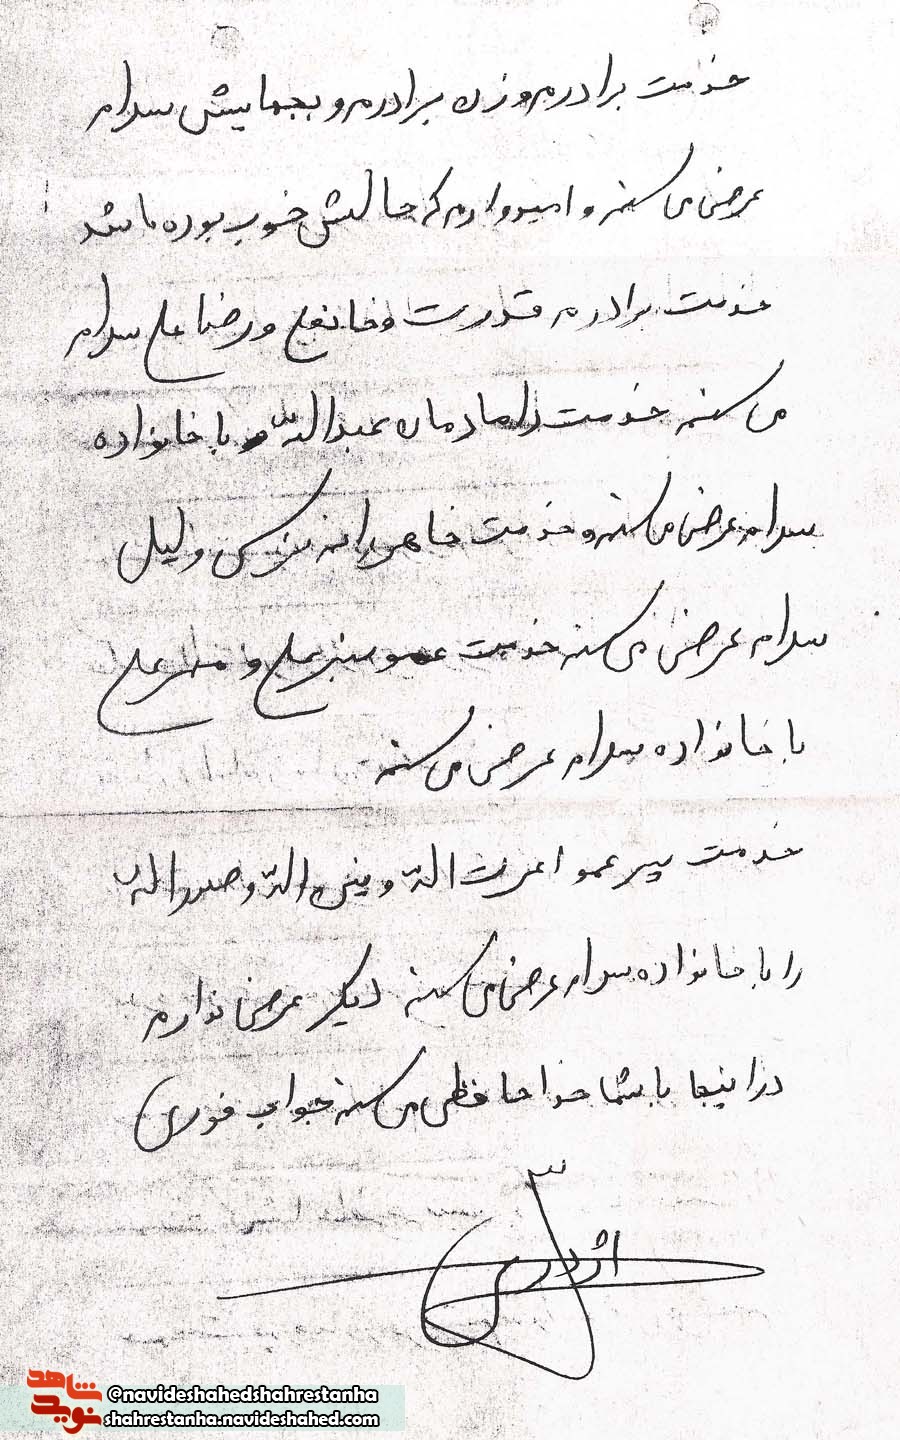 خدمت برادرم وزن برادرم و بچهایش سلام
عرض می کنم و امیدوارم که حالتش خوب بوده باشد
خدمت برادرم قدرت و خانعلی و رضا علی سلام
می کنم خدمت دامادمان عبدالله و با خانواده
سلام عرض می کنم و خدمت خاهرانم نرگس و لیل
سلام عرض می کنم خدمت عمو سبزعلی و مهرعلی
با خانواده سلام عرض می کنم
خدمت پسر عمو اعزت الله و یین الله و صدرالله
را با خانواده سلام عرض می کنم دیگر عرضی ندارم
در اینجا با شما خدا حافظی می کنم جواب فوری
اژدری
شاهد
نوید
@navideshahedshahrestanha
shahrestanha.navideshahed.com